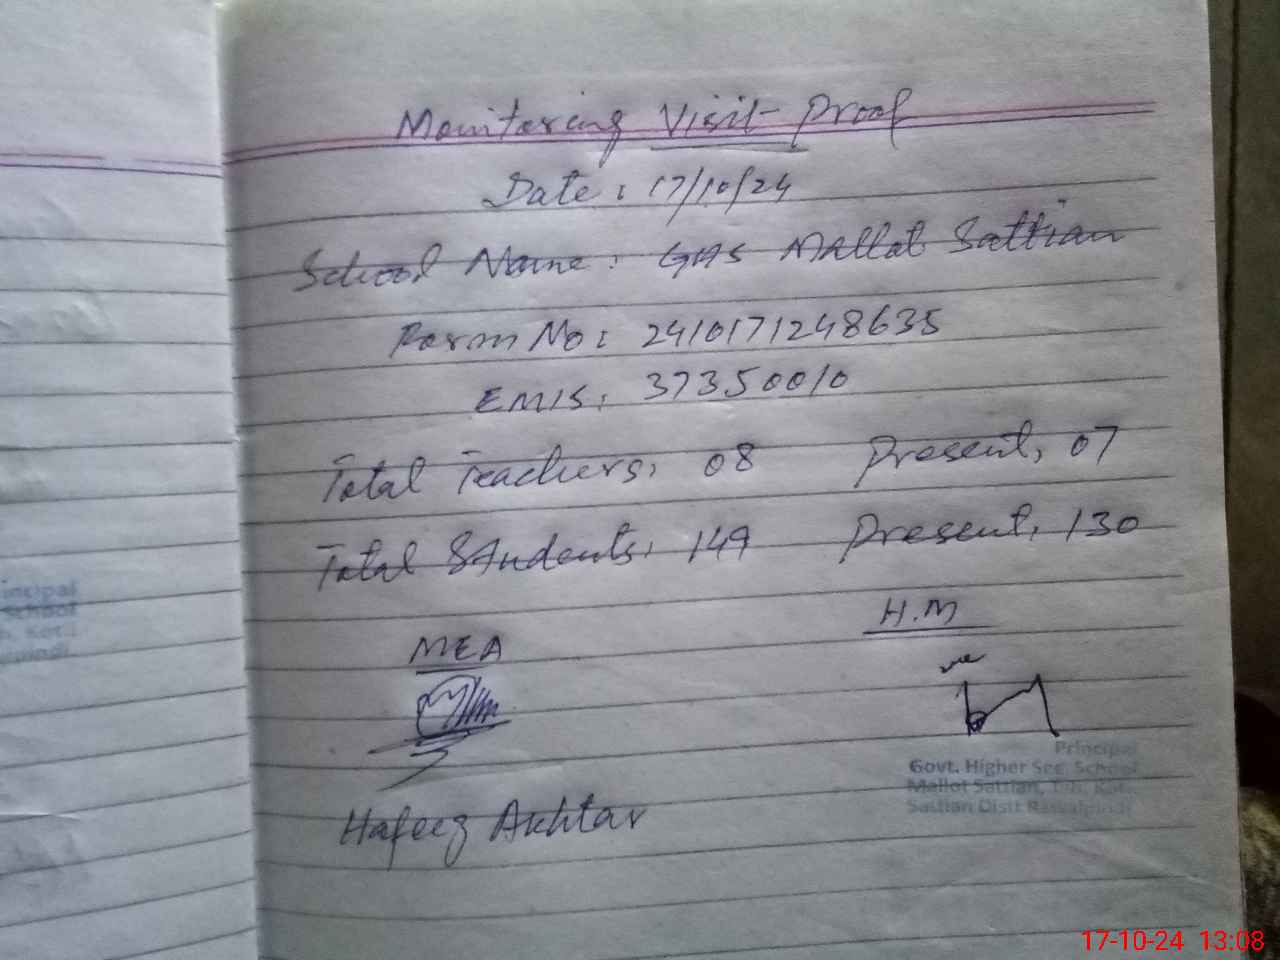 Monitoring Visit Proof
Date: 17/10/24
School Name: GHS Mallot Sattian
Form No: 2410171248635
EMIS: 37350010
Total Teachers: 08 Present: 07
Total Students: 149 Present: 130
MEA H.M
Principal
Govt. Higher Sec. School
Mallot Sattian, Teh. Kot.
Sattian Distt Rawalpindi
Hafeez Akhtar
incipal
School
17-10-24 13:08